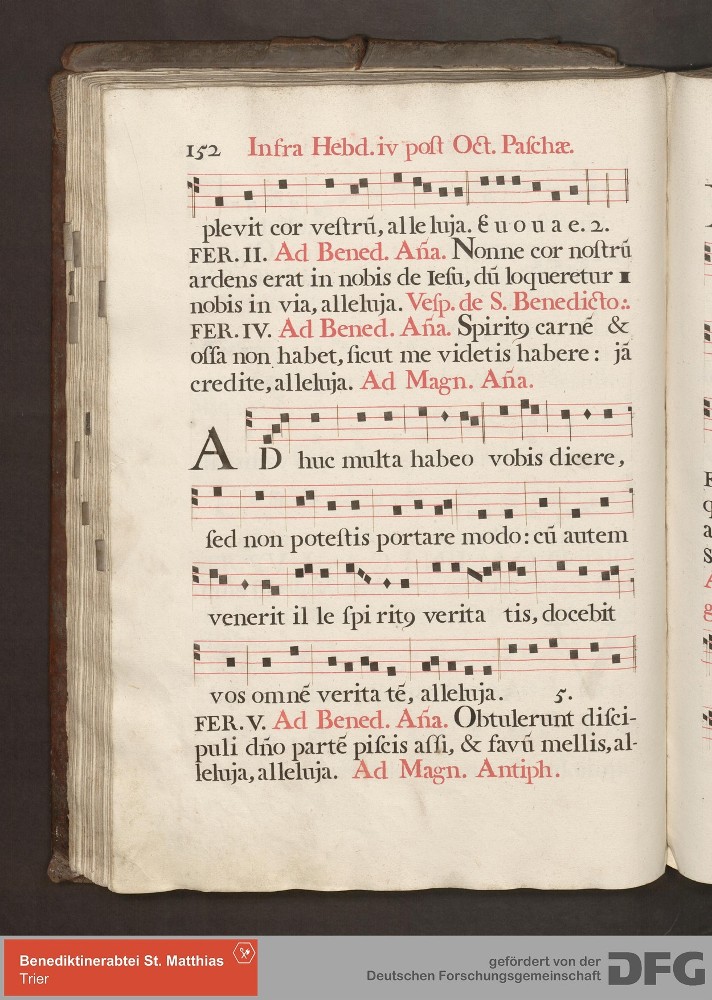 152 Infra Hebd. iv poſt Oct. Paſchæ.
plevit cor veſtrū, alleluja. E u o u a e. 2.
FER. II. Ad Bened. Aña. Nonne cor noſtrū
ardens erat in nobis de Ieſu, dū loqueretur
nobis in via, alleluja. Veſp. de S. Benedicto:.
FER. IV. Ad Bened. Aña. Spiritꝯ carnē &
oſſa non habet, ſicut me videtis habere: jā
credite, alleluja. Ad Magn. Aña.
AD huc multa habeo vobis dicere,
ſed non poteſtis portare modo: cū autem
venerit il le ſpi ritꝯ verita tis, docebit
vos omnē verita tē, alleluja. 5.
FER. V. Ad Bened. Aña. Obtulerunt diſci-
puli dño partē piſcis aſſi, & favū mellis, al-
leluja, alleluja. Ad Magn. Antiph.
Benediktinerabtei St. Matthias
Trier
gefördert von der
Deutschen Forschungsgemeinschaft
DFG